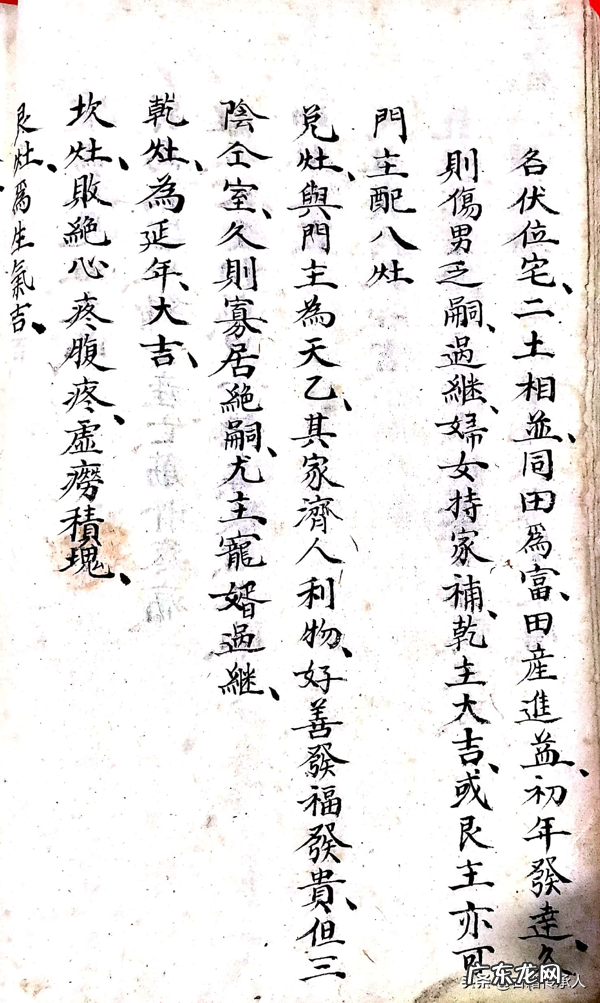 名伏位宅、二土相並、同田為富、田産進益、初年發達、久
則傷男乏嗣、過継、婦女持家、補乾主大吉、或艮主亦可
門主配八灶
兑灶、與門主為天乙、其家濟人利物、好善發福發貴、但三
陰仝室、久則寡居絶嗣、尤主寵婿過継、
乾灶、為延年、大吉、
坎灶、敗絶心疼腹疼、虛癆積塊、
艮灶、為生氣吉、
广东龙网